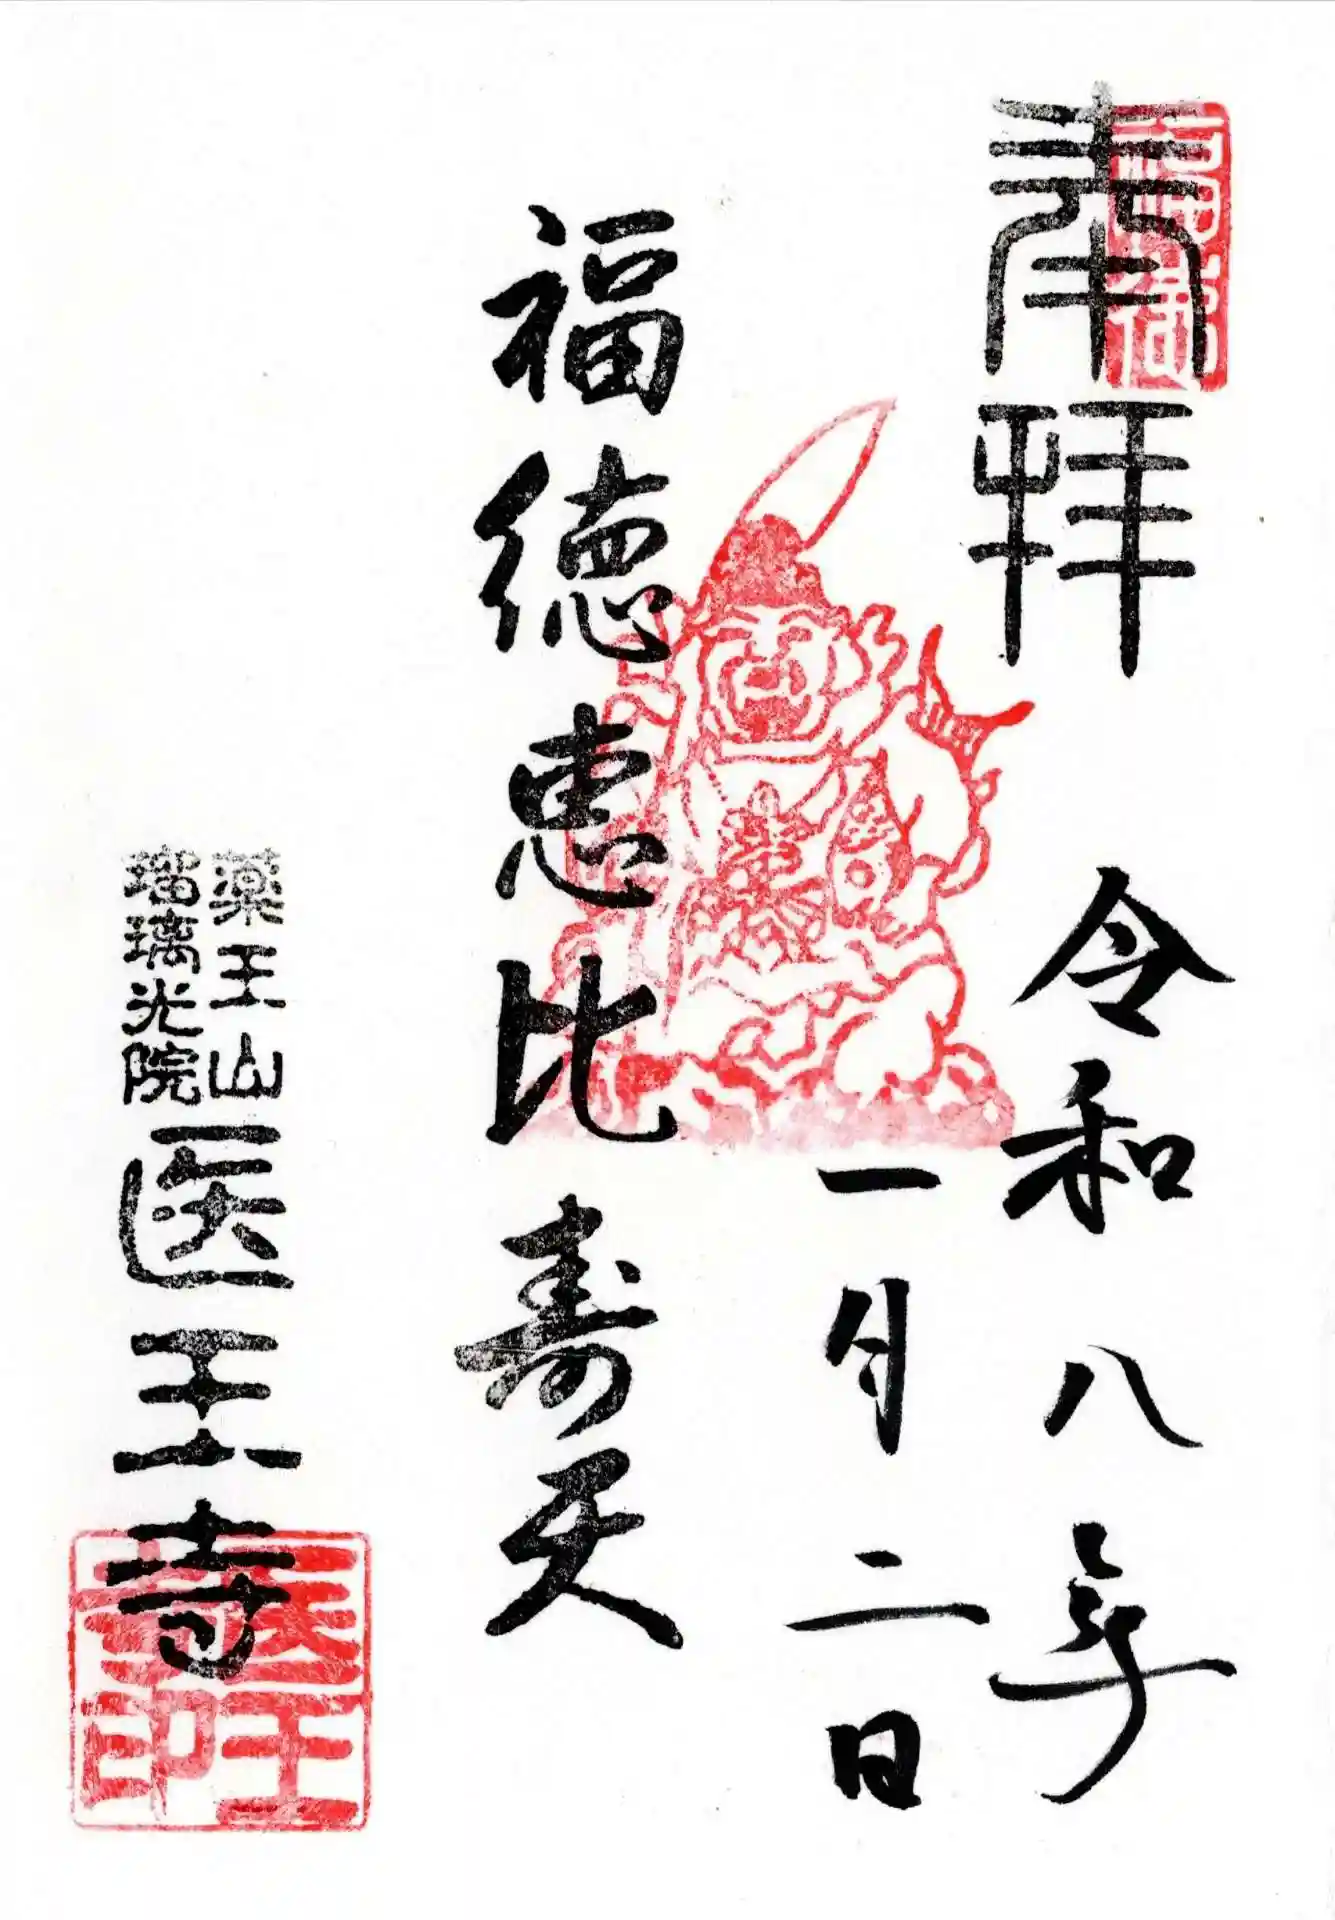 奉拝
令和八年
一月二日
福徳恵比寿天
薬王山
瑠璃光院
医王寺
医王寺印